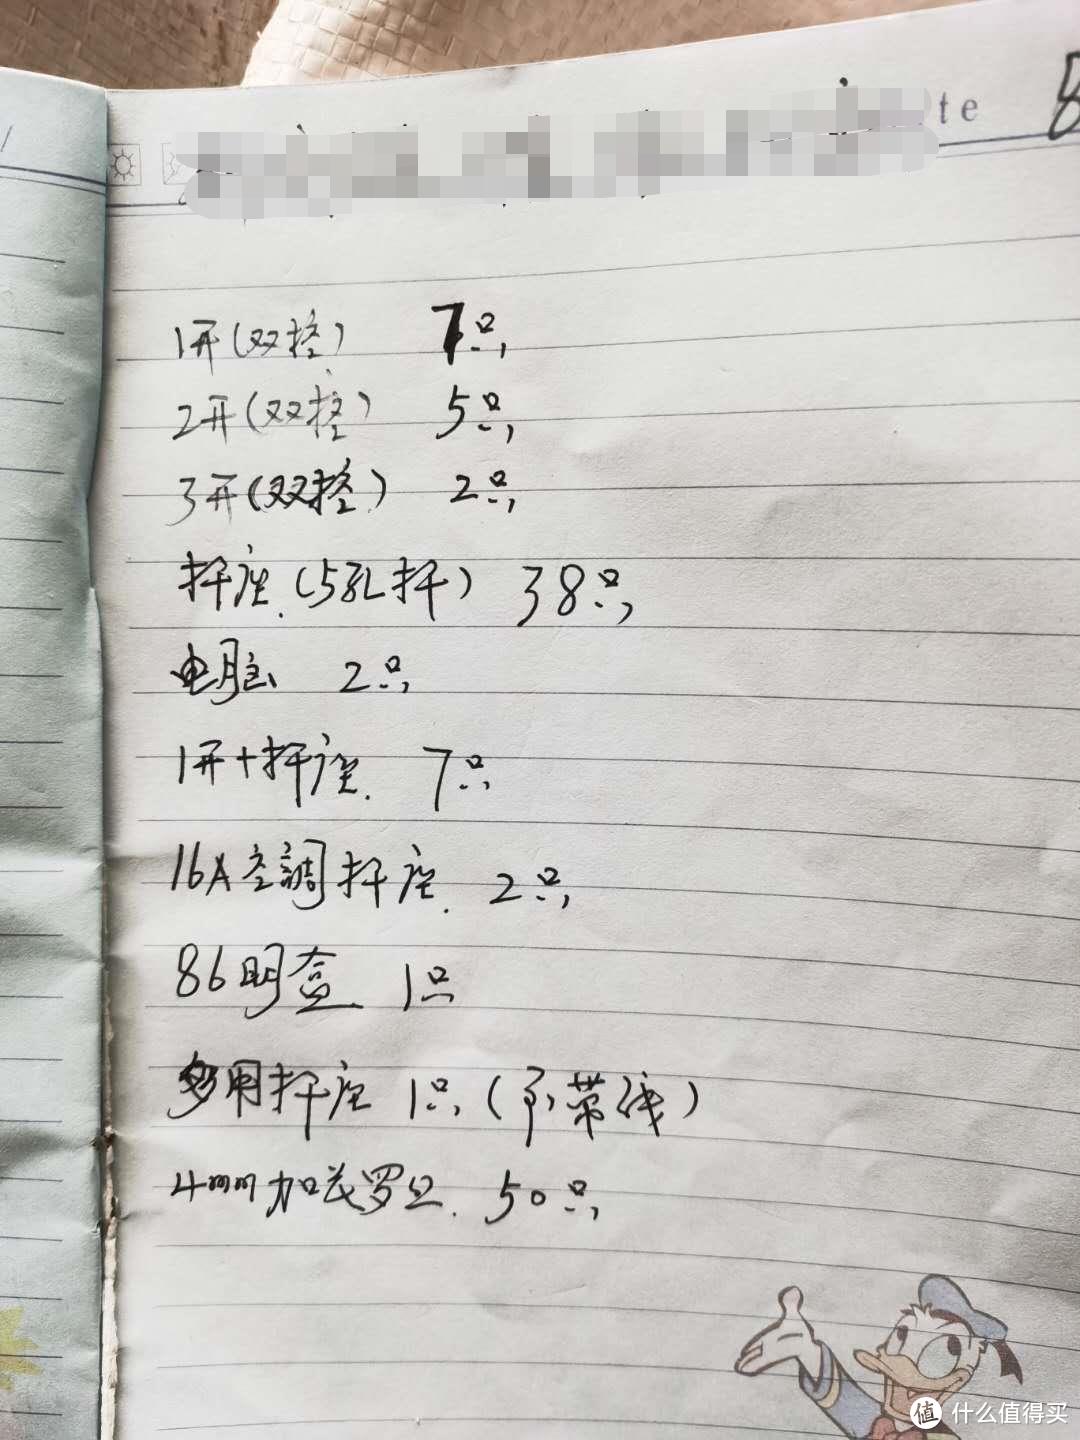 te 8
1开(双控) 7只,
2开(双控) 5只,
3开(双控) 2只,
扦座.(5孔扦) 38只,
电脑 2只,
1开+扦座. 7只
16A空調扦座. 2只,
86明盒 1只
多用扦座 1只,(不带线)
4mm加长罗旦. 50只,
值 什么值得买